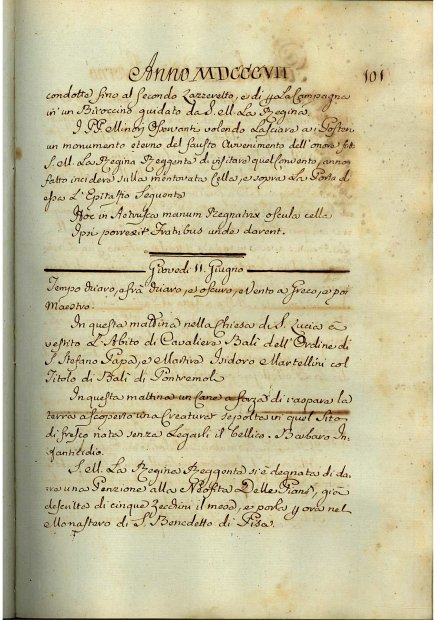 Anno MDCCCVII
101
condotte fino al Secondo Lazzeretto, e di p. la Campagna
in un Biroccino guidato da S. M. La Regina.
I PP. Minori Osservanti volendo Lasciare a' Posteri
un monumento eterno del fausto Avvenimento dell'onore
S. M. La Regina Reggente di visitare quel Convento, anno
fatto incidere sulla mentovata Cella, e sopra La Porta di
essa L'Epitafio Seguente
Hoc in Aetrusco manum Regnatrix oscula cella
Ipsi porrexit Fratribus unde darent.
Giovedì 11. Giugno
Tempo chiaro, e frà chiaro, e oscuro, e Vento a Greco, e poi
Maestro.
In questa mattina nella Chiesa di S. Lucia à
vestito L'Abito di Cavaliere Balì dell'Ordine di
S. Stefano Papa, e Martire Isidoro Martellini col
Titolo di Balì di Pontremoli
In questa mattina un Cane a forza di raspare la
terra à scoperto una Creatura sepolta in quel Sito
di fresco nata senza Legarli il bellico. Barbaro In-
fanticidio.
S. M. La Regina Reggente si è degnata di da-
re una Penzione alla Neofita Delle Piane, già
descritta di cinque Zecchini il mese, e porla p. ora nel
Monastero di S. Benedetto di Pisa.